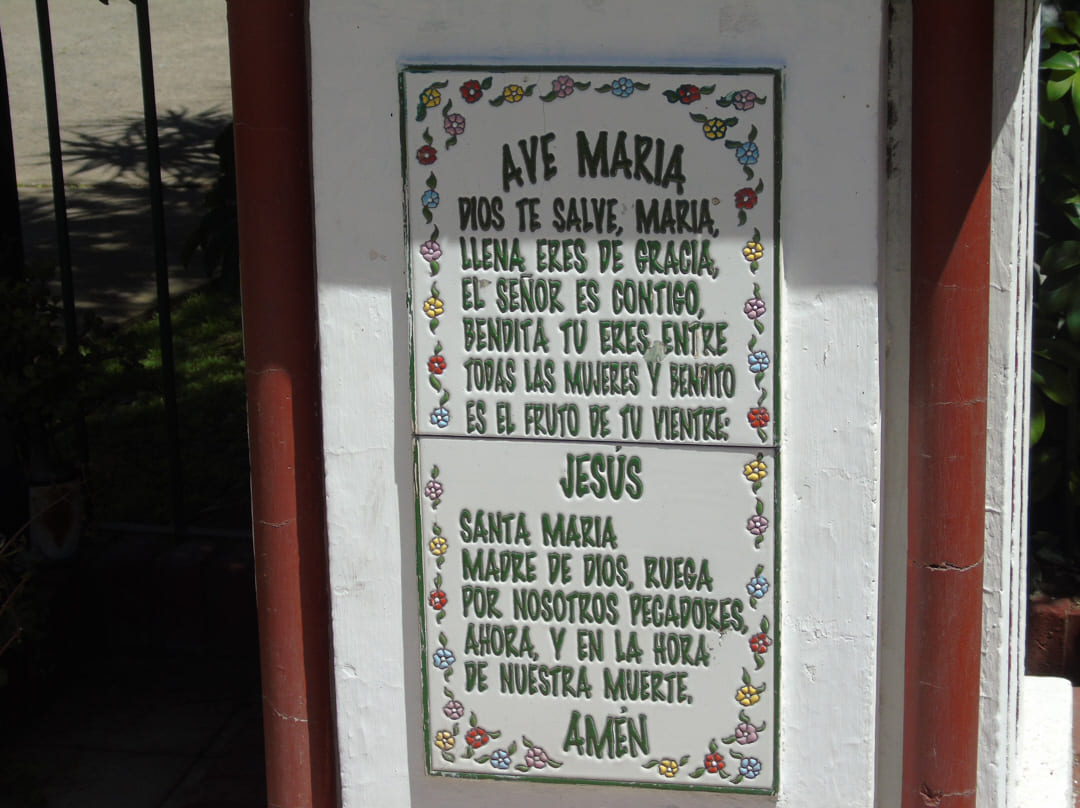 AVE MARIA
DIOS TE SALVE, MARIA,
LLENA ERES DE GRACIA,
EL SEÑOR ES CONTIGO,
BENDITA TU ERES ENTRE
TODAS LAS MUJERES Y BENDITO
ES EL FRUTO DE TU VIENTRE:
JESÚS
SANTA MARIA
MADRE DE DIOS, RUEGA
POR NOSOTROS PECADORES,
AHORA, Y EN LA HORA
DE NUESTRA MUERTE.
AMÉN